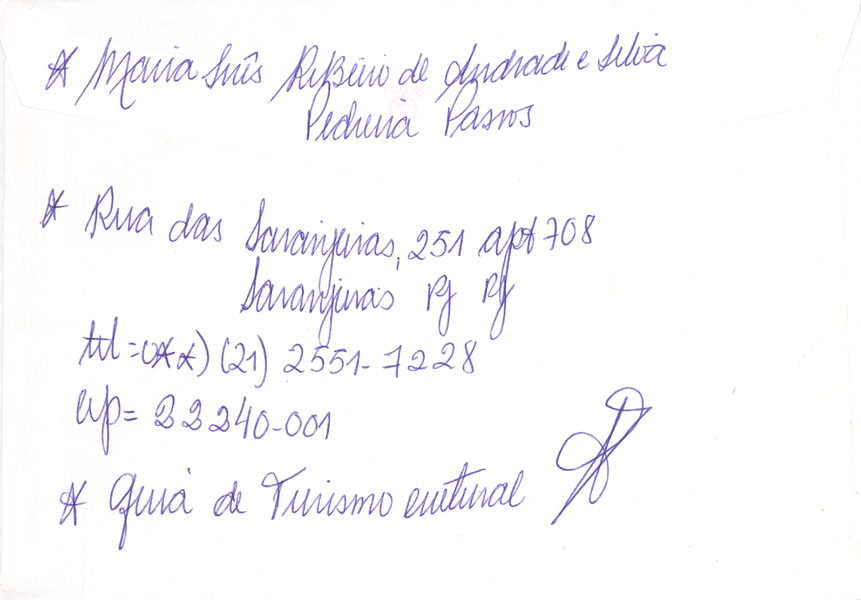 * Maria Inês Ribeiro de Andrade e Silva
Pedreira Passos
* Rua das Laranjeiras, 251 apt 708
Laranjeiras RJ RJ
tel=0xx) (21) 2551-7228
cep= 22240-001
* Guia de Turismo cultural